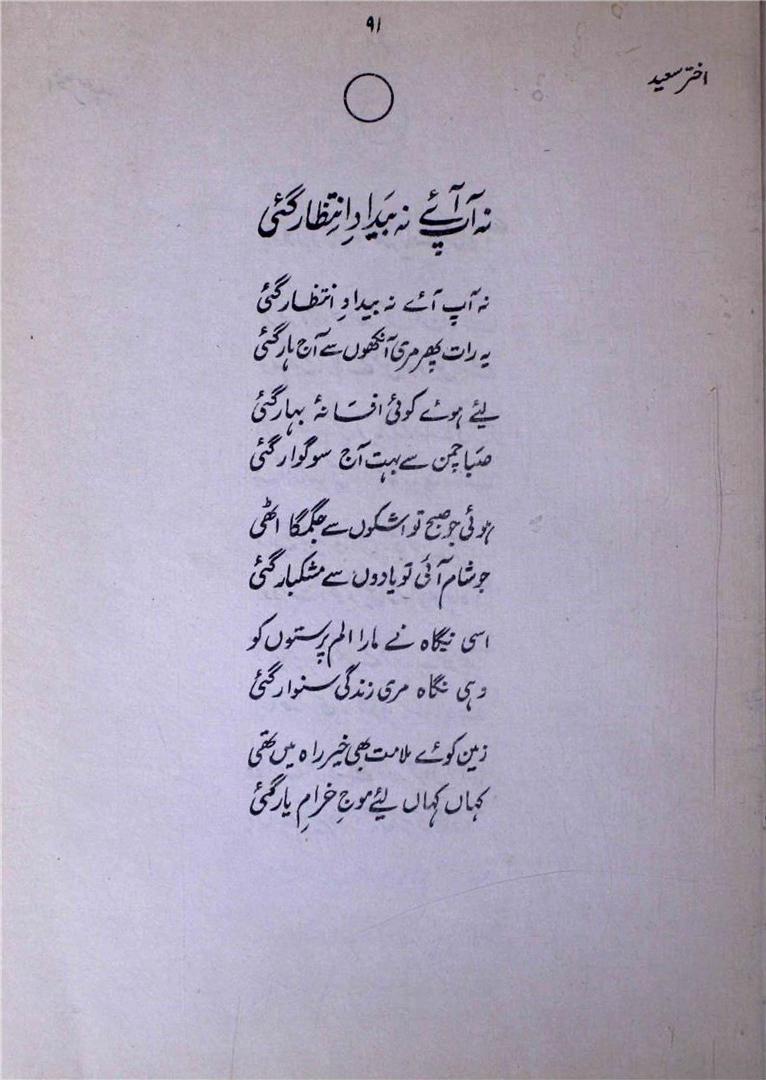 ۹۱
اختر سعید
نہ آپ آئے نہ بَیدادِ اِنتِظار گئی
نہ آپ آئے نہ بیدادِ انتظار گئی
یہ رات پھر مری آنکھوں سے آج ہار گئی
لیٔے ہوئے کوئی افسانۂ بہار گئی
صَبا چمن سے بہت آج سوگوار گئی
ہوئی جو صبح تو اشکوں سے جگمگا اٹھی
جو شام آئی تو یادوں سے مشکبار گئی
اسی نگاہ نے مارا الم پرستوں کو
وہی نگاہ مری زندگی سنوار گئی
زمین کوئے ملامت بھی خیر راہ میں تھی
کہاں کہاں لیٔے موجِ خرامِ یار گئی